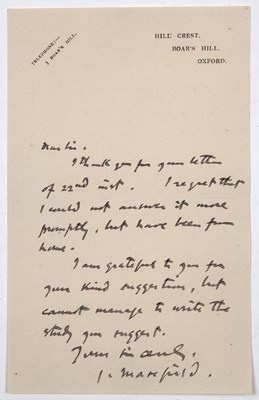 TELEPHONE:—
1 BOAR'S HILL.
HILL CREST,
BOAR'S HILL,
OXFORD.
Dear Sir.
I thank you for your letter
of 22nd inst. I regret that
I could not answer it more
promptly, but have been from
home.
I am grateful to you for
your kind suggestion, but
cannot manage to write the
study you suggest.
Yours sincerely,
J. Masefield.